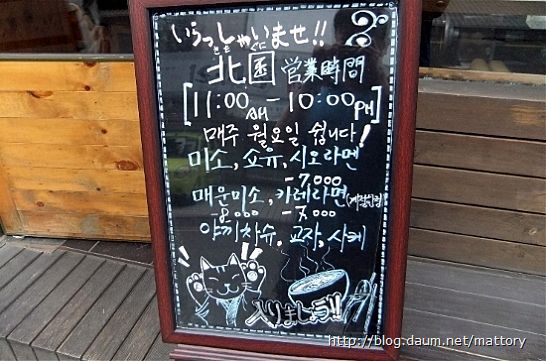 いらっしゃいませ!!
きたぐに
北国 営業時間
[11:00AM - 10:00PM]
매주 월요일 쉽니다!
미소, 쇼유, 시오라멘
-7,000
매운미소, 카레라면
-8,000
야끼챠슈, 교자, 사케
入りましょう!!
http://blog.daum.net/mattory